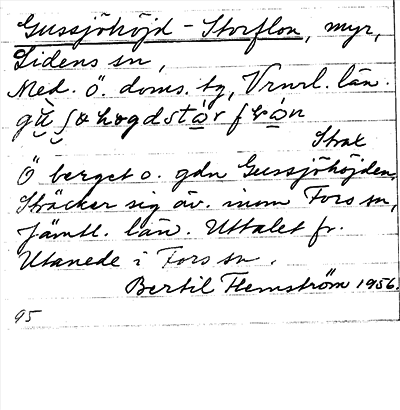 Gussjöhöjd-Storflon, myr,
Lidens sn,
Med. ö. doms. tg, Vrnrl. län.
Strax
Ö berget o. gdn Gussjöhöjden.
Sträcker sig äv. inom Fors sn,
Jämtl. län. Uttalet fr.
Utanede i Fors sn.
Bertil Flemström 1956.
95